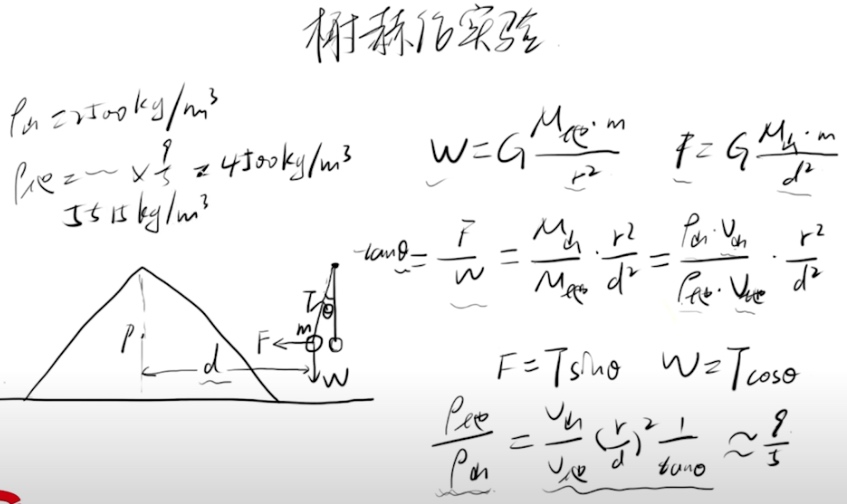 榭赫伦实验
ρ山=2500kg/m³
ρ地=~×9/5=4500kg/m³
5515kg/m³
W=G M地·m/r²
F=G M山·m/d²
tanθ=F/W=M山/M地·r²/d²=ρ山·V山/ρ地·V地·r²/d²
T
θ
m
F
W
P.
d
F=Tsinθ W=Tcosθ
ρ地/ρ山=V山/V地(r/d)²1/tanθ≈9/5